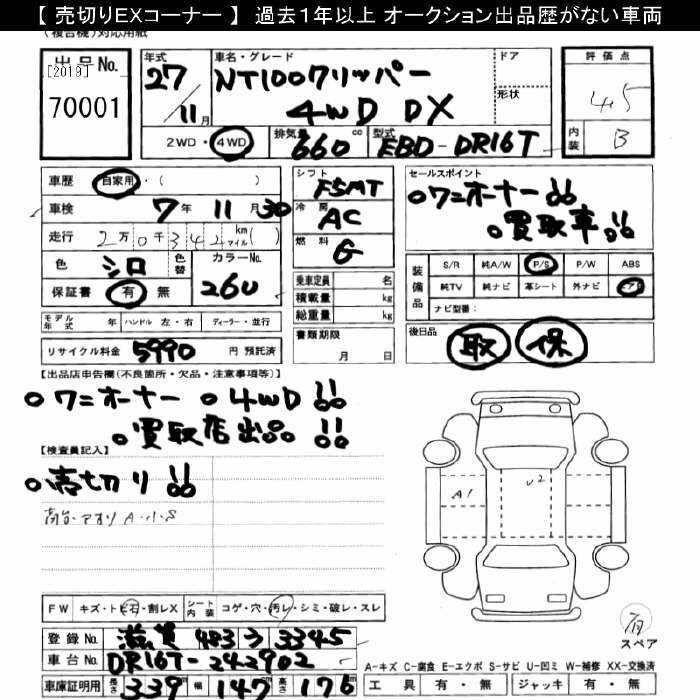 【 売切りEXコーナー 】 過去1年以上 オークション出品歴がない車両
(複合機)対応用紙
出品No.
[2019]
70001
年式 車名・グレード ドア
27/11月 NT100クリッパー
4WD DX 形状
2WD・4WD 排気量 660 cc 型式 EBD-DR16T
評価点
4.5
内装 B
車歴 自家用・( )
車検 7年 11月 30
走行 2万0千342 km マイル( )
色 シロ 色替 カラーNo. 26U
保証書 有・無
モデル年式 年 ハンドル 左・右 ディーラー・並行
リサイクル料金 5990 円 預託済
シフト F5MT
冷房 AC
燃料 G
乗車定員 名
積載量 kg
総重量 kg
書類期限
月 日
セールスポイント
○ワンオーナー!!
○買取車!!
装備品 S/R 純A/W P/S P/W ABS
純TV 純ナビ 革シート 外ナビ エアB
ナビ型番:
後日品
取 保
【出品店申告欄(不良箇所・欠品・注意事項等)】
○ワンオーナー ○4WD!!
○買取店出品!!
【検査員記入】
○売切り!!
荷台・アオリ A・小S
A1 U2
FW キズ・トビ石・割レX シート内装 コゲ・穴・汚レ・シミ・破レ・スレ
登録No. 滋賀 483 う 3345
車台No. DR16T-242902
車庫証明用 長さ 339 幅 147 高さ 176
スペア
A-キズ C-腐食 E-エクボ S-サビ U-凹ミ W-補修 XX-交換済
工具 有・無 ジャッキ 有・無